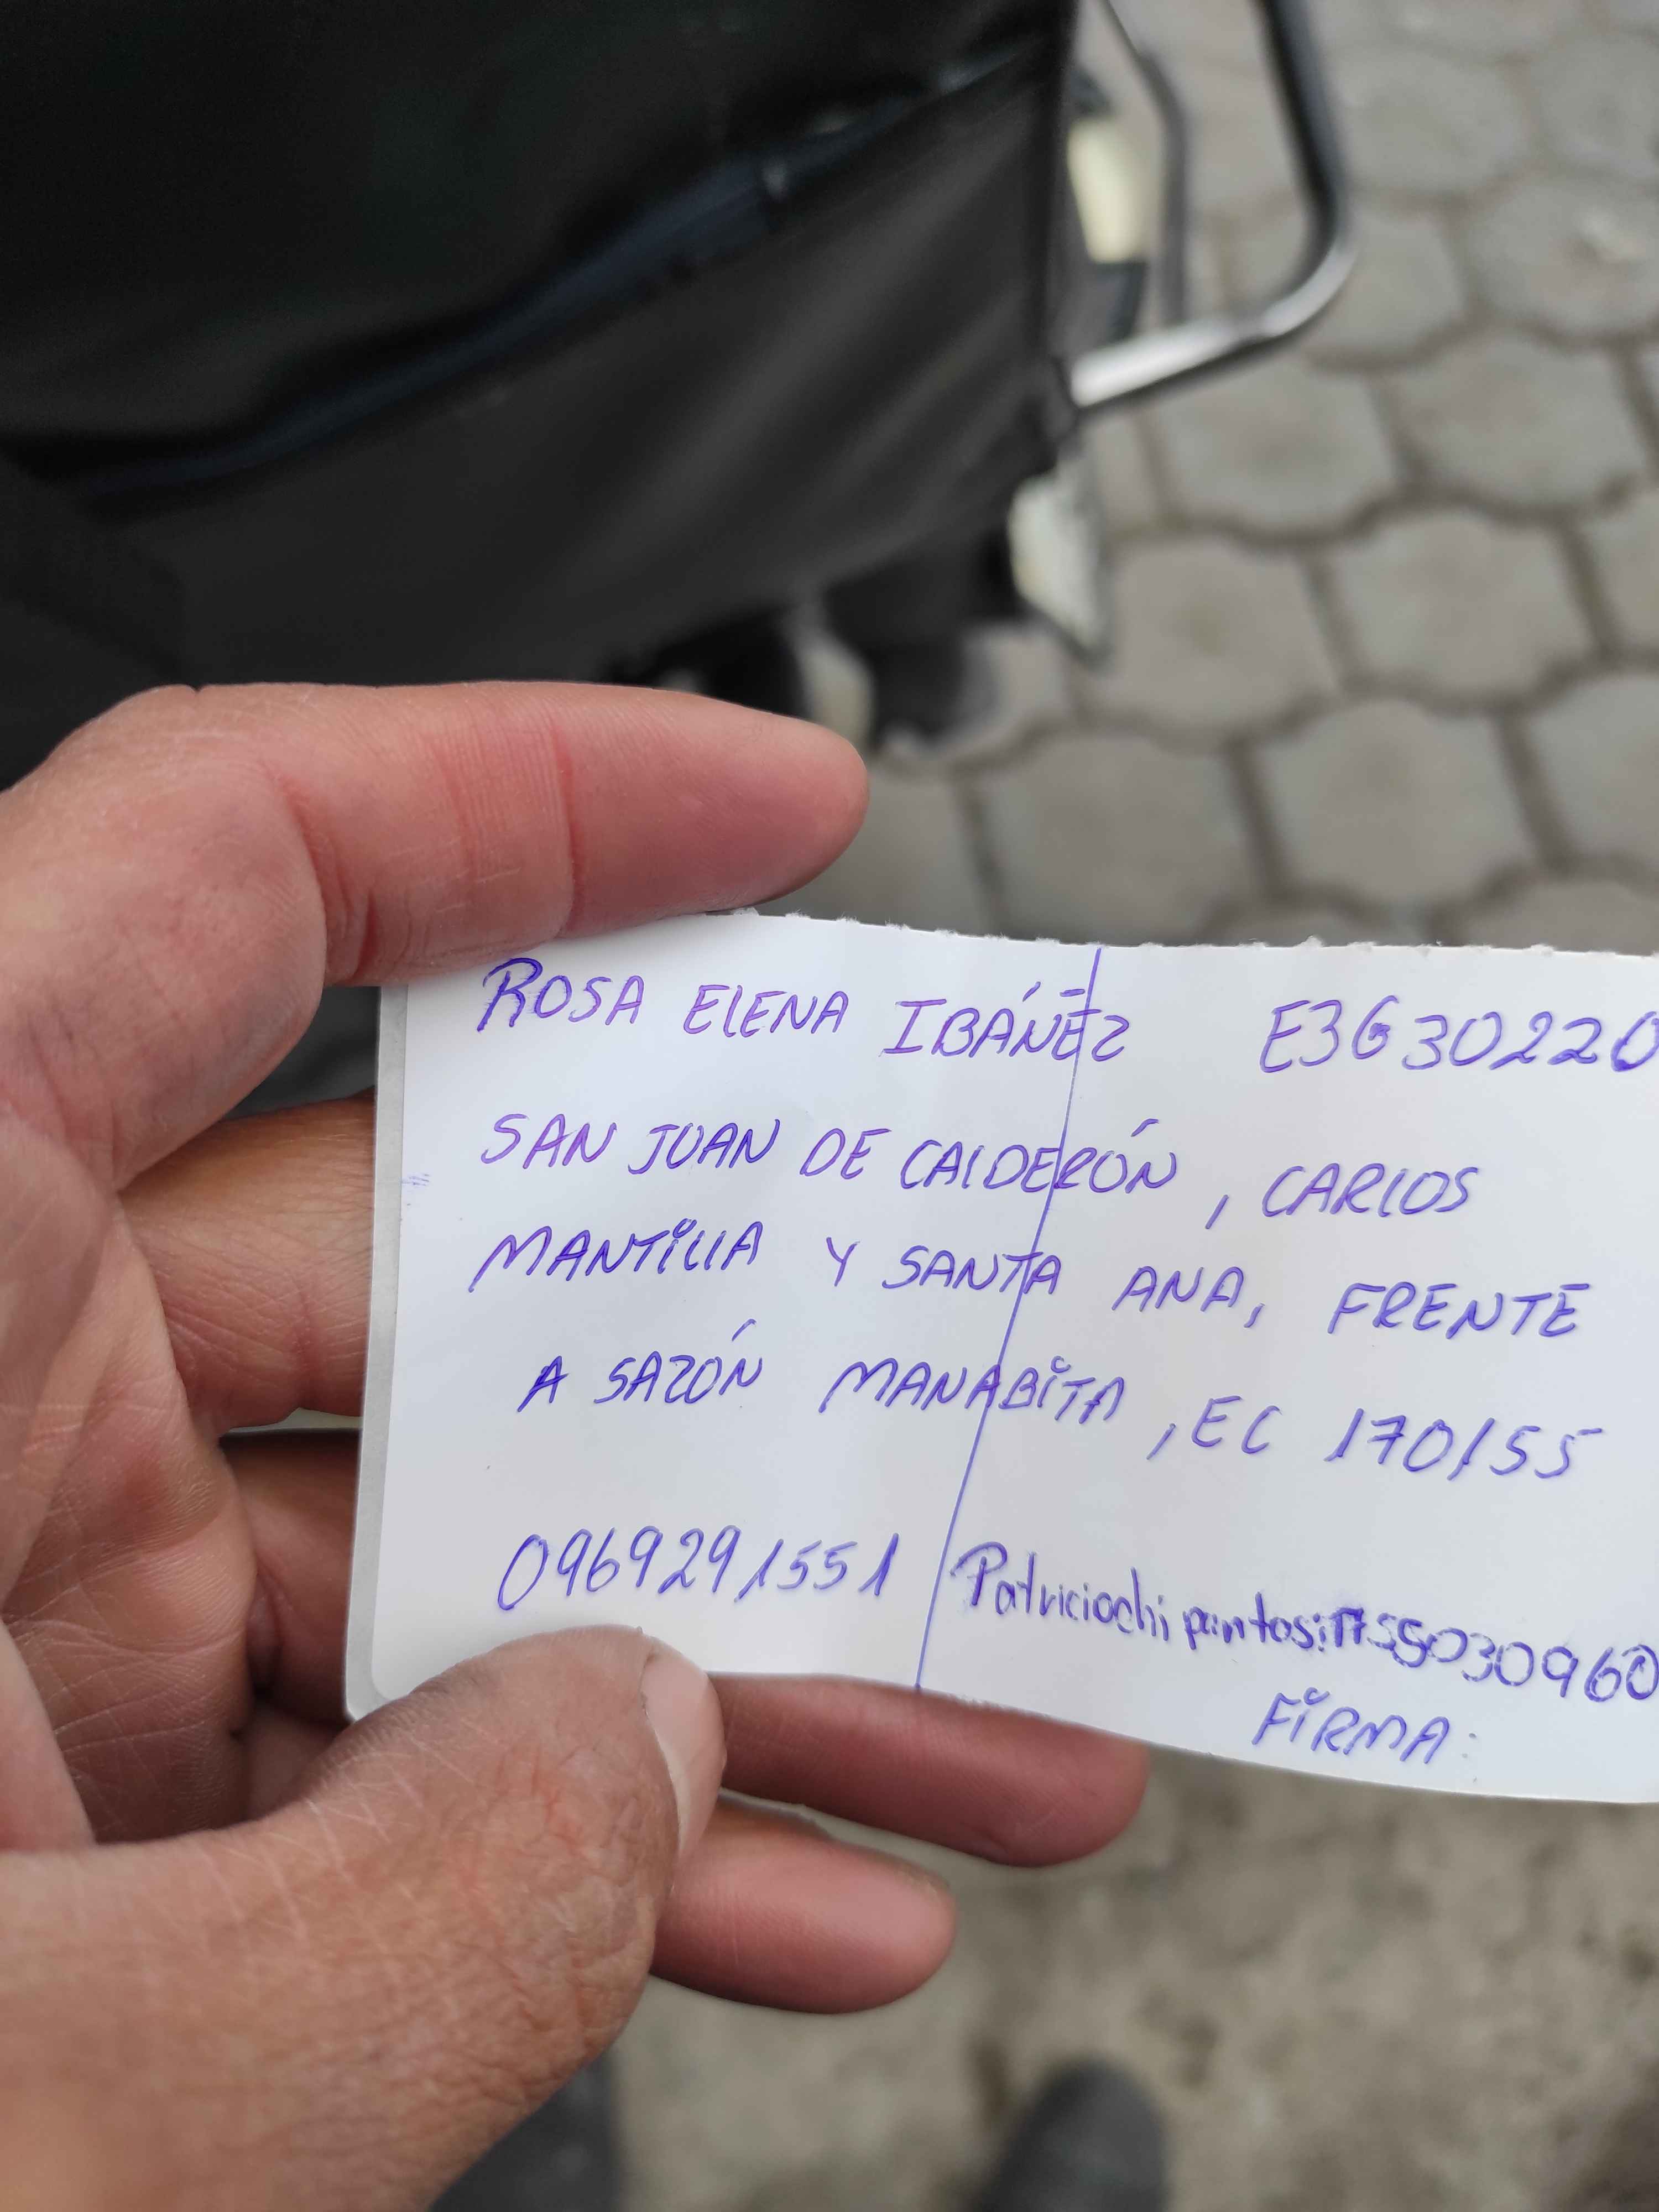 ROSA ELENA IBÁÑEZ E3G30220
SAN JUAN DE CALDERÓN, CARLOS
MANTILLA Y SANTA ANA, FRENTE
A SAZÓN MANABITA, EC 170155
0969291551 Patriciochi pintos:1755030960
FIRMA: